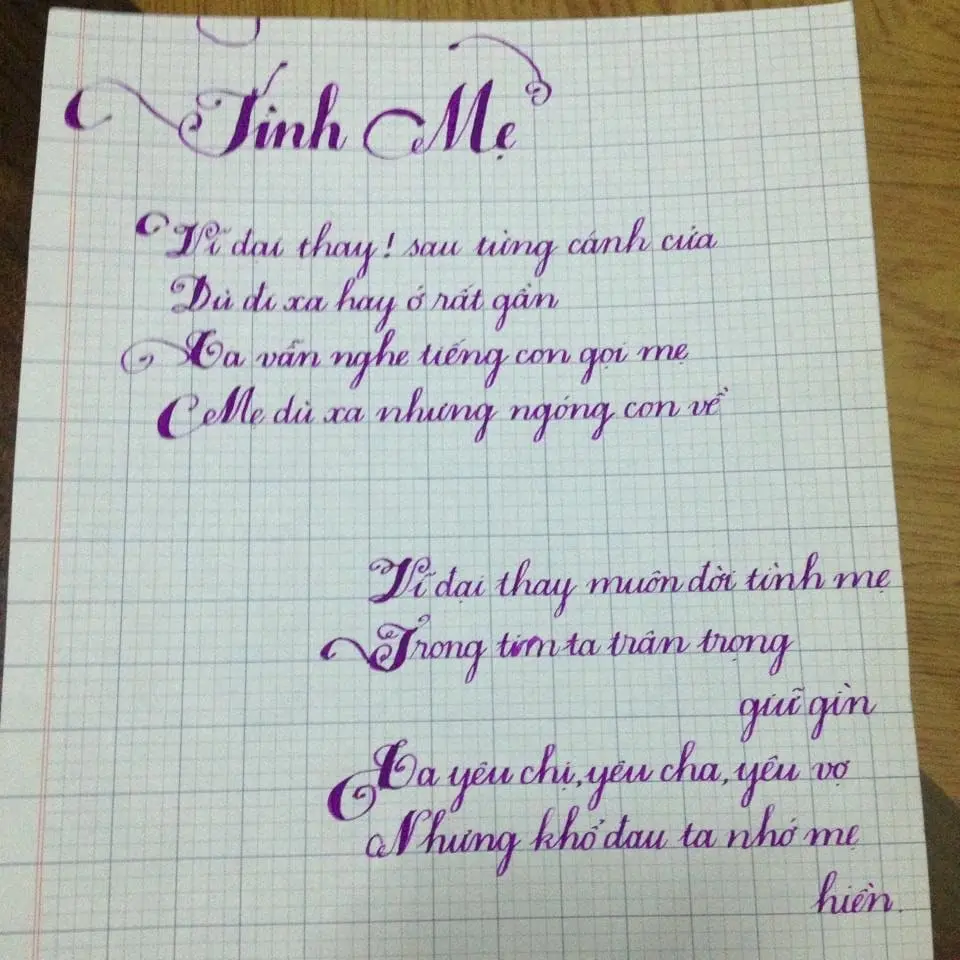 Tình Mẹ
Vĩ đại thay! sau từng cánh cửa
Dù đi xa hay ở rất gần
Ta vẫn nghe tiếng con gọi mẹ
Mẹ dù xa nhưng ngóng con về
Vĩ đại thay muôn đời tình mẹ
Trong tim ta trân trọng
giữ gìn
Ta yêu chị, yêu cha, yêu vợ
Nhưng khổ đau ta nhớ mẹ
hiền